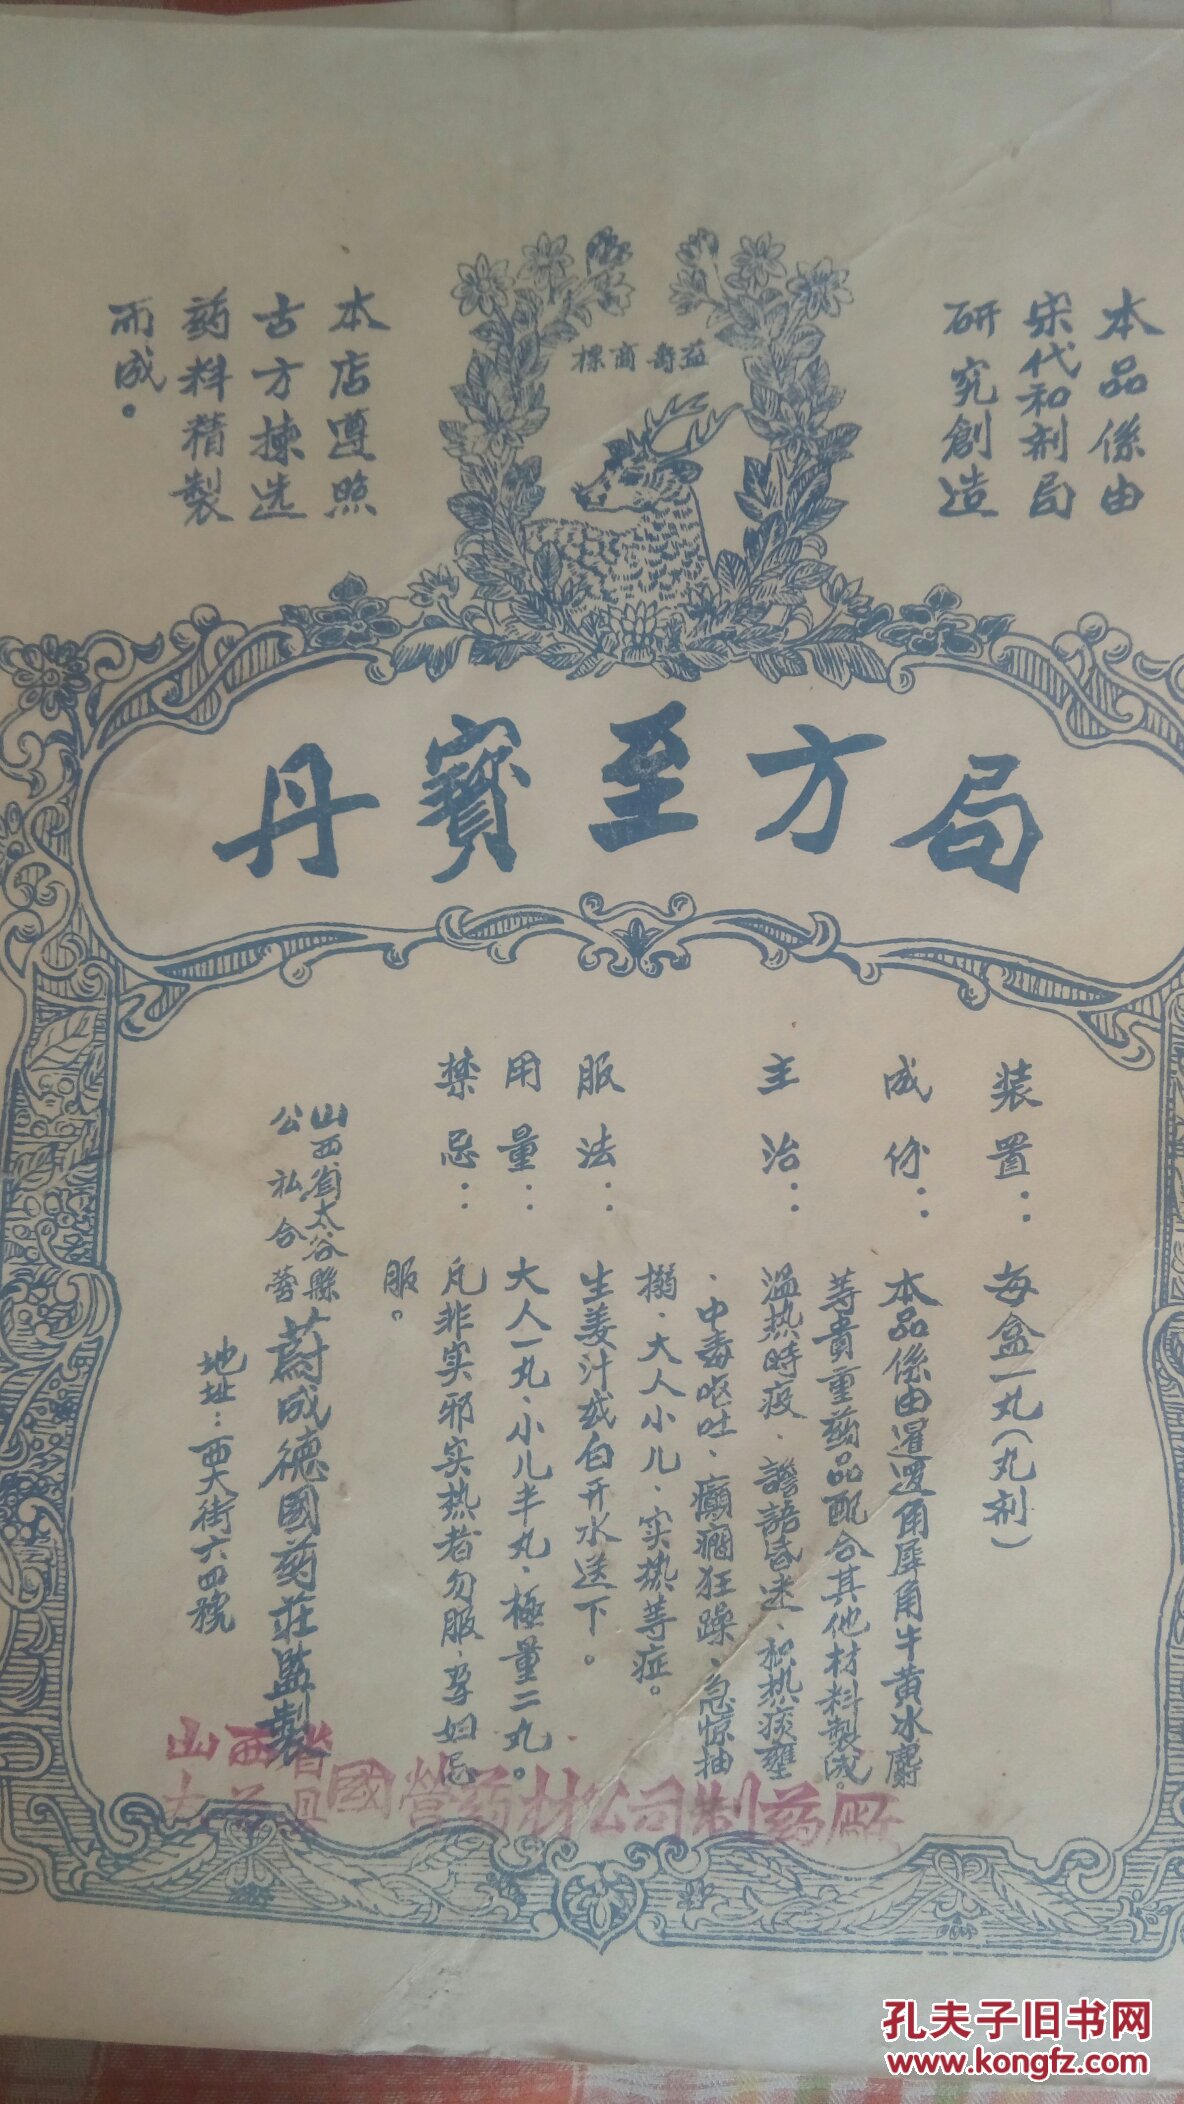 本品係由
宋代和剂局
研究創造
益壽商標
本店遵照
古方揀选
药料精製
而成。
局方至寶丹
装置：每盒一丸（丸剂）
成份：本品係由暹邏角犀角牛黄冰麝
等貴重药品配合其他材料製成。
主治：溫热時疫、譫語昏迷、积热痰壅
、中毒呕吐、癲癇狂躁、急惊抽
搦、大人小儿、实热等症。
服法：生姜汁或白开水送下。
用量：大人一丸、小儿半丸、極量二丸。
禁忌：凡非实邪实热者勿服、孕妇忌
服。
山西省太谷縣
公私合营
蔚成德國药莊監製
地址：西大街六四號
山西省
太谷县
國營药材公司制药厰
孔夫子旧书网
www.kongfz.com